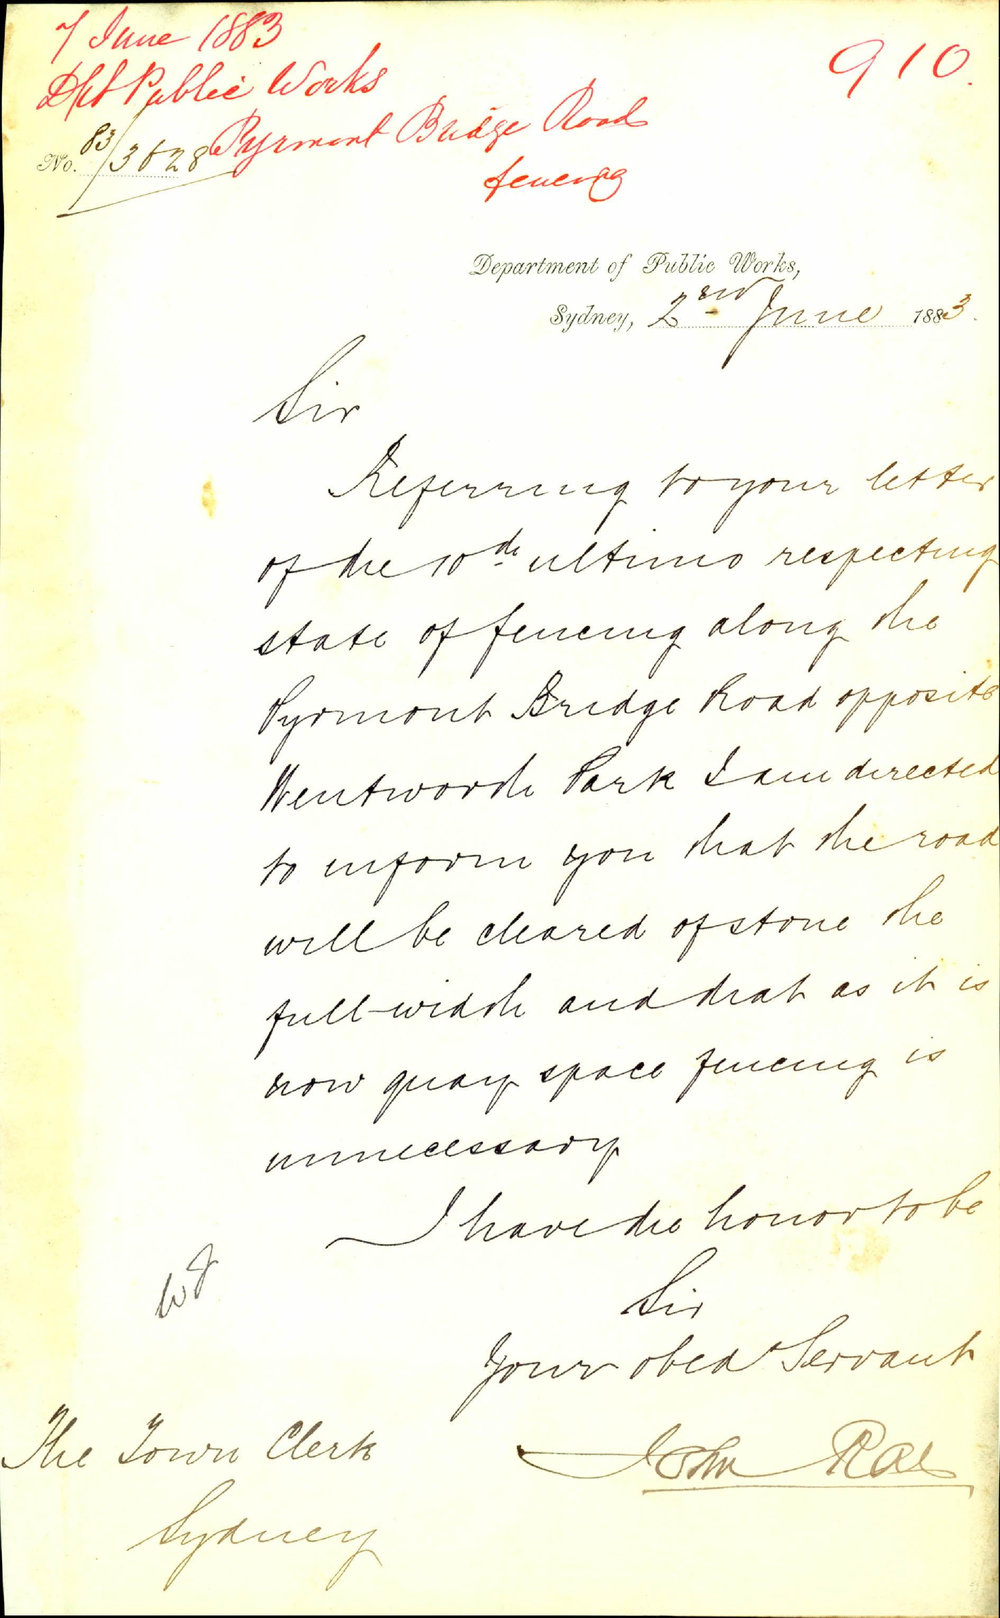 7 June 1883
910.
Dpt Public Works
No. 83/3828 Pyrmont Bridge Road
fencing
Department of Public Works,
Sydney, 2nd June 1883.
Sir
Referring to your letter
of the 10th ultimo respecting
state of fencing along the
Pyrmont Bridge Road opposite
Wentworth Park I am directed
to inform you that the road
will be cleared of stone the
full width and that as it is
now quay space fencing is
unnecessary
I have the honor to be
Sir
Your obedt Servant
John Rae
The Town Clerk
Sydney